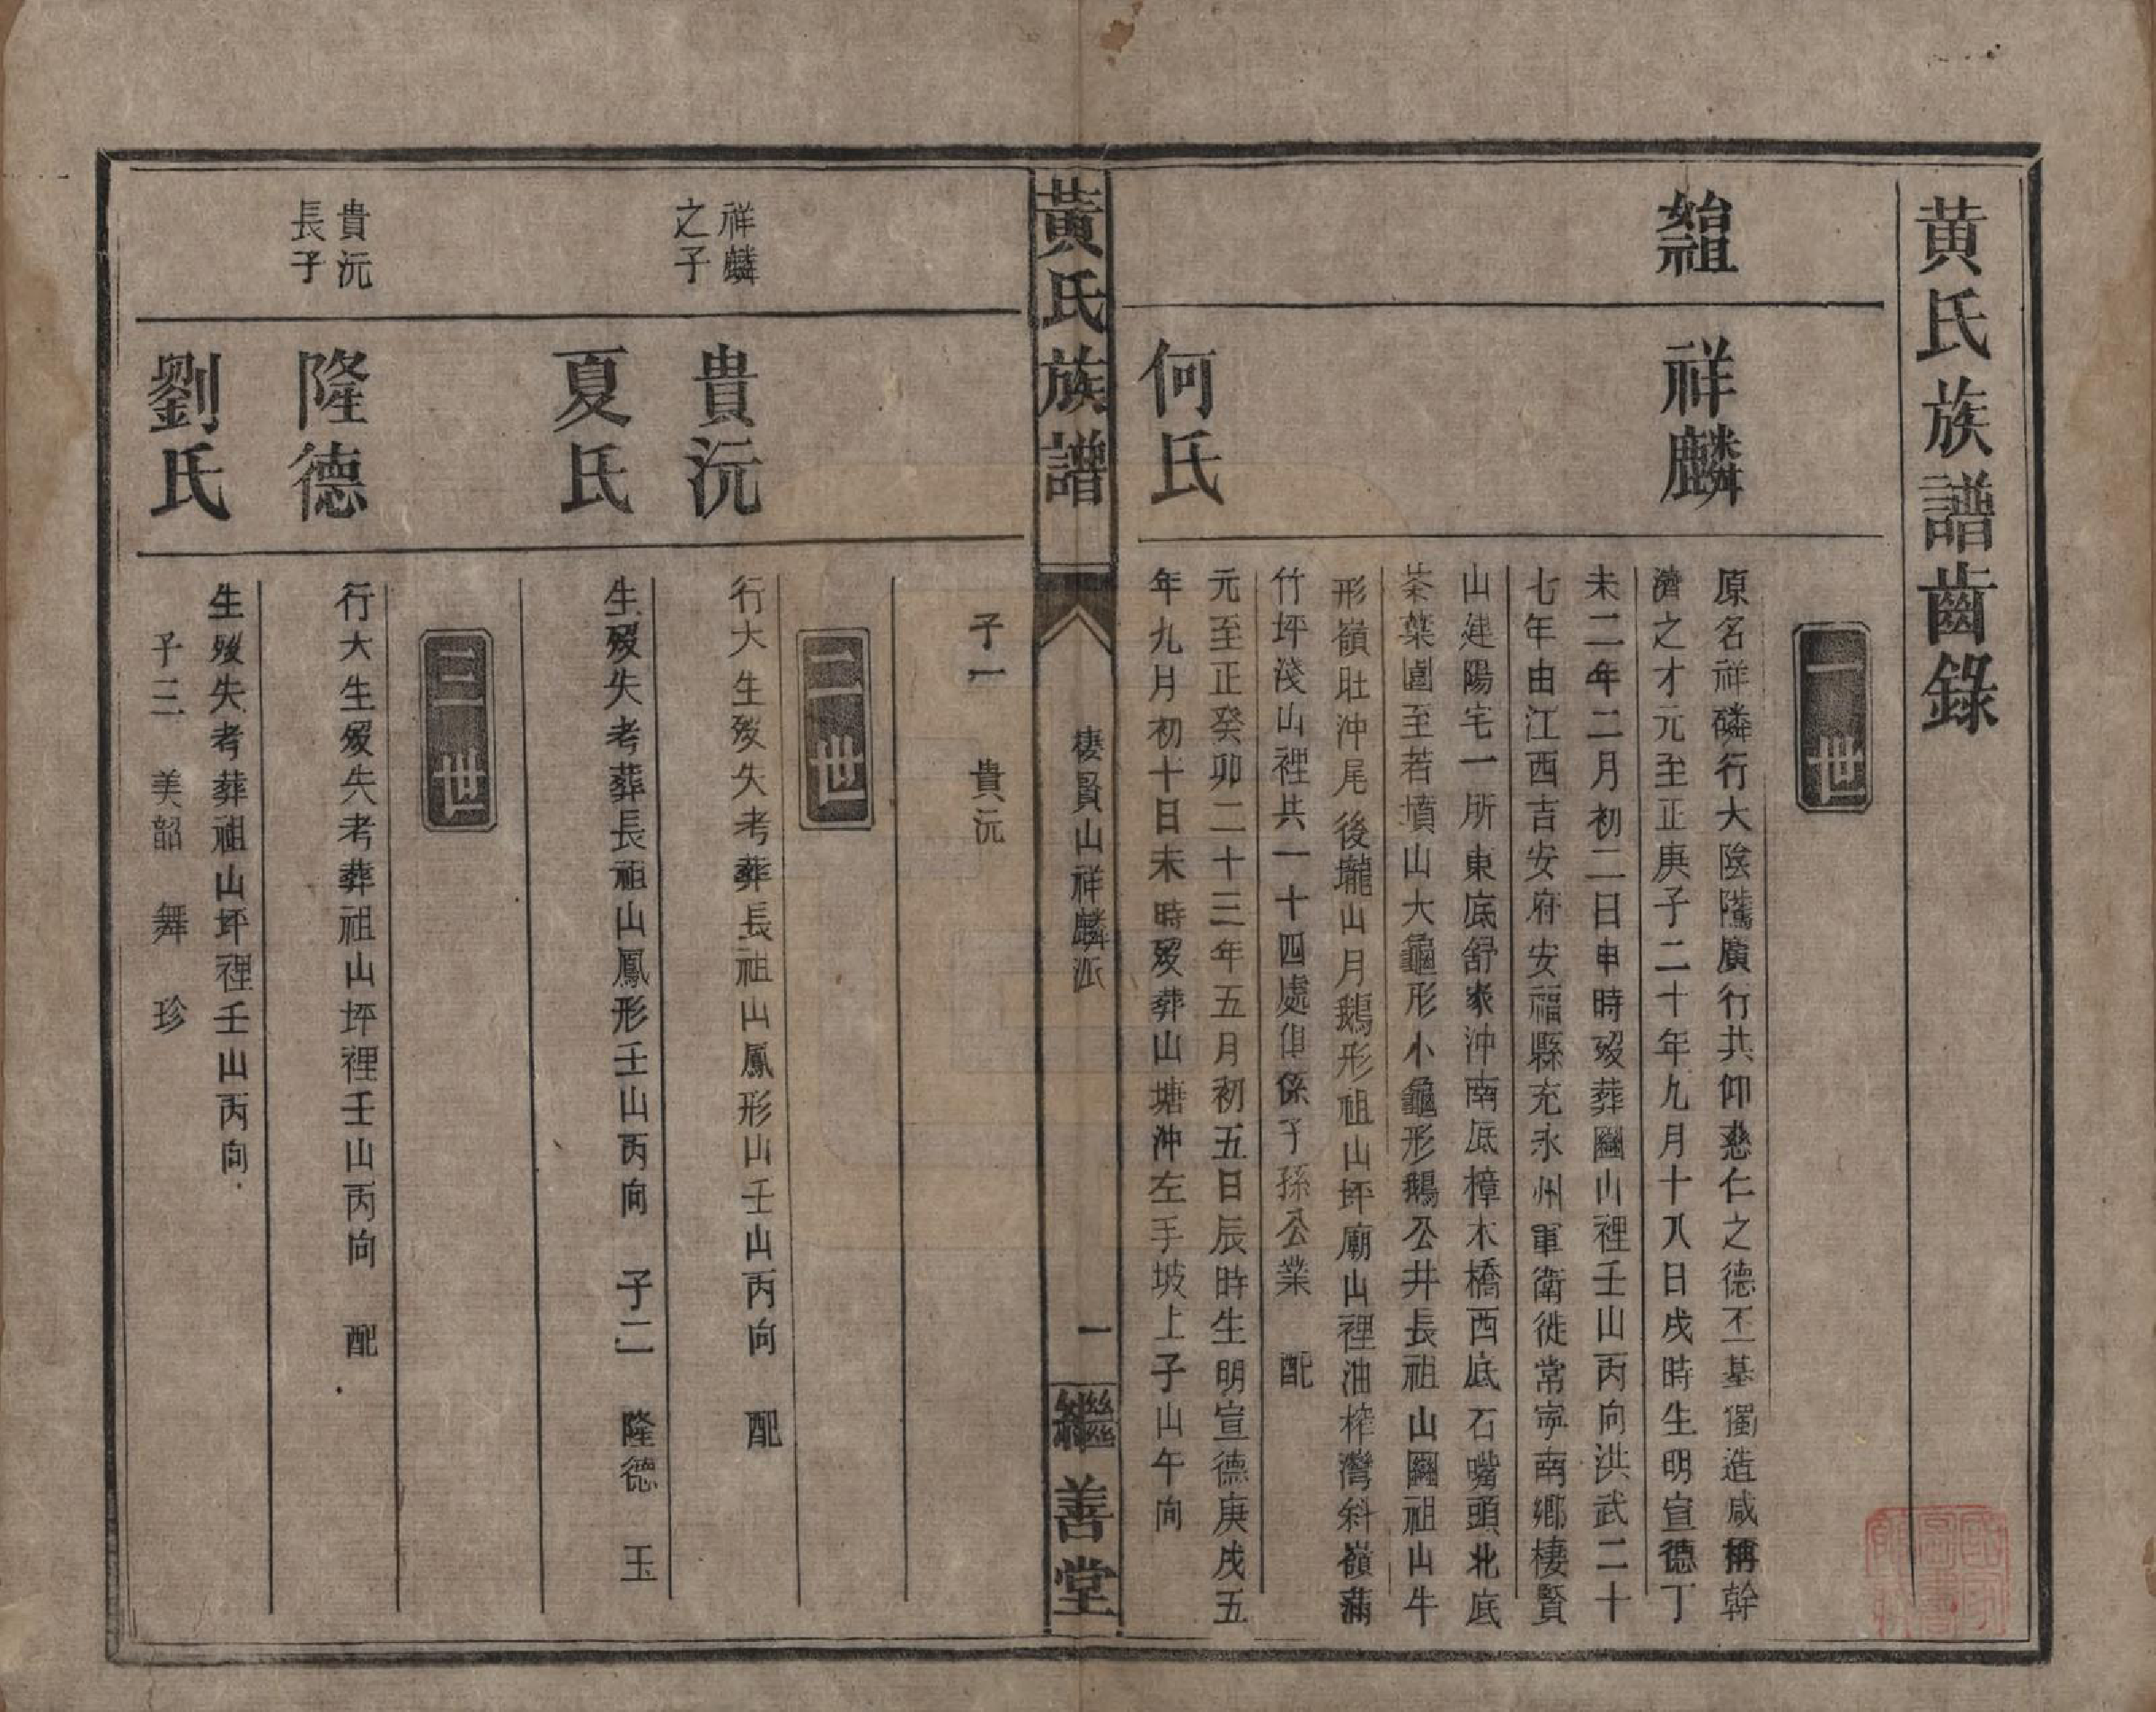 黄氏族譜齒錄
一世
始祖
祥麟
原名祥磷行大陰隲廣行共仰慈仁之德丕基獨造咸稱幹
濟之才元至正庚子二十年九月十八日戌時生明宣德丁
未二年二月初二日申時歿葬圝山裡壬山丙向洪武二十
七年由江西吉安府安福縣充永州軍衛徙常寧南鄉棲賢
山建陽宅一所東底舒家沖南底樟木橋西底石嘴頭北底
茶葉園至若墳山大龜形小龜形鵝公井長祖山圝祖山牛
形嶺肚沖尾後壠山月鵝形祖山坪廟山裡油榨灣斜嶺蒲
竹坪淺山裡共一十四處俱係子孫公業 配
何氏
元至正癸卯二十三年五月初五日辰時生明宣德庚戌五
年九月初十日未時歿葬山塘沖左手坡上子山午向
黃氏族譜
棲賢山祥麟派
一
繼善堂
子一 貴沅
二世
祥麟
之子
貴沅
行大生歿失考葬長祖山鳳形山壬山丙向 配
夏氏
生歿失考葬長祖山鳳形壬山丙向 子二 隆德 玉
三世
貴沅
長子
隆德
行大生歿失考葬祖山坪裡壬山丙向 配
劉氏
生歿失考葬祖山坪裡壬山丙向
子三 美韶 舞 珍